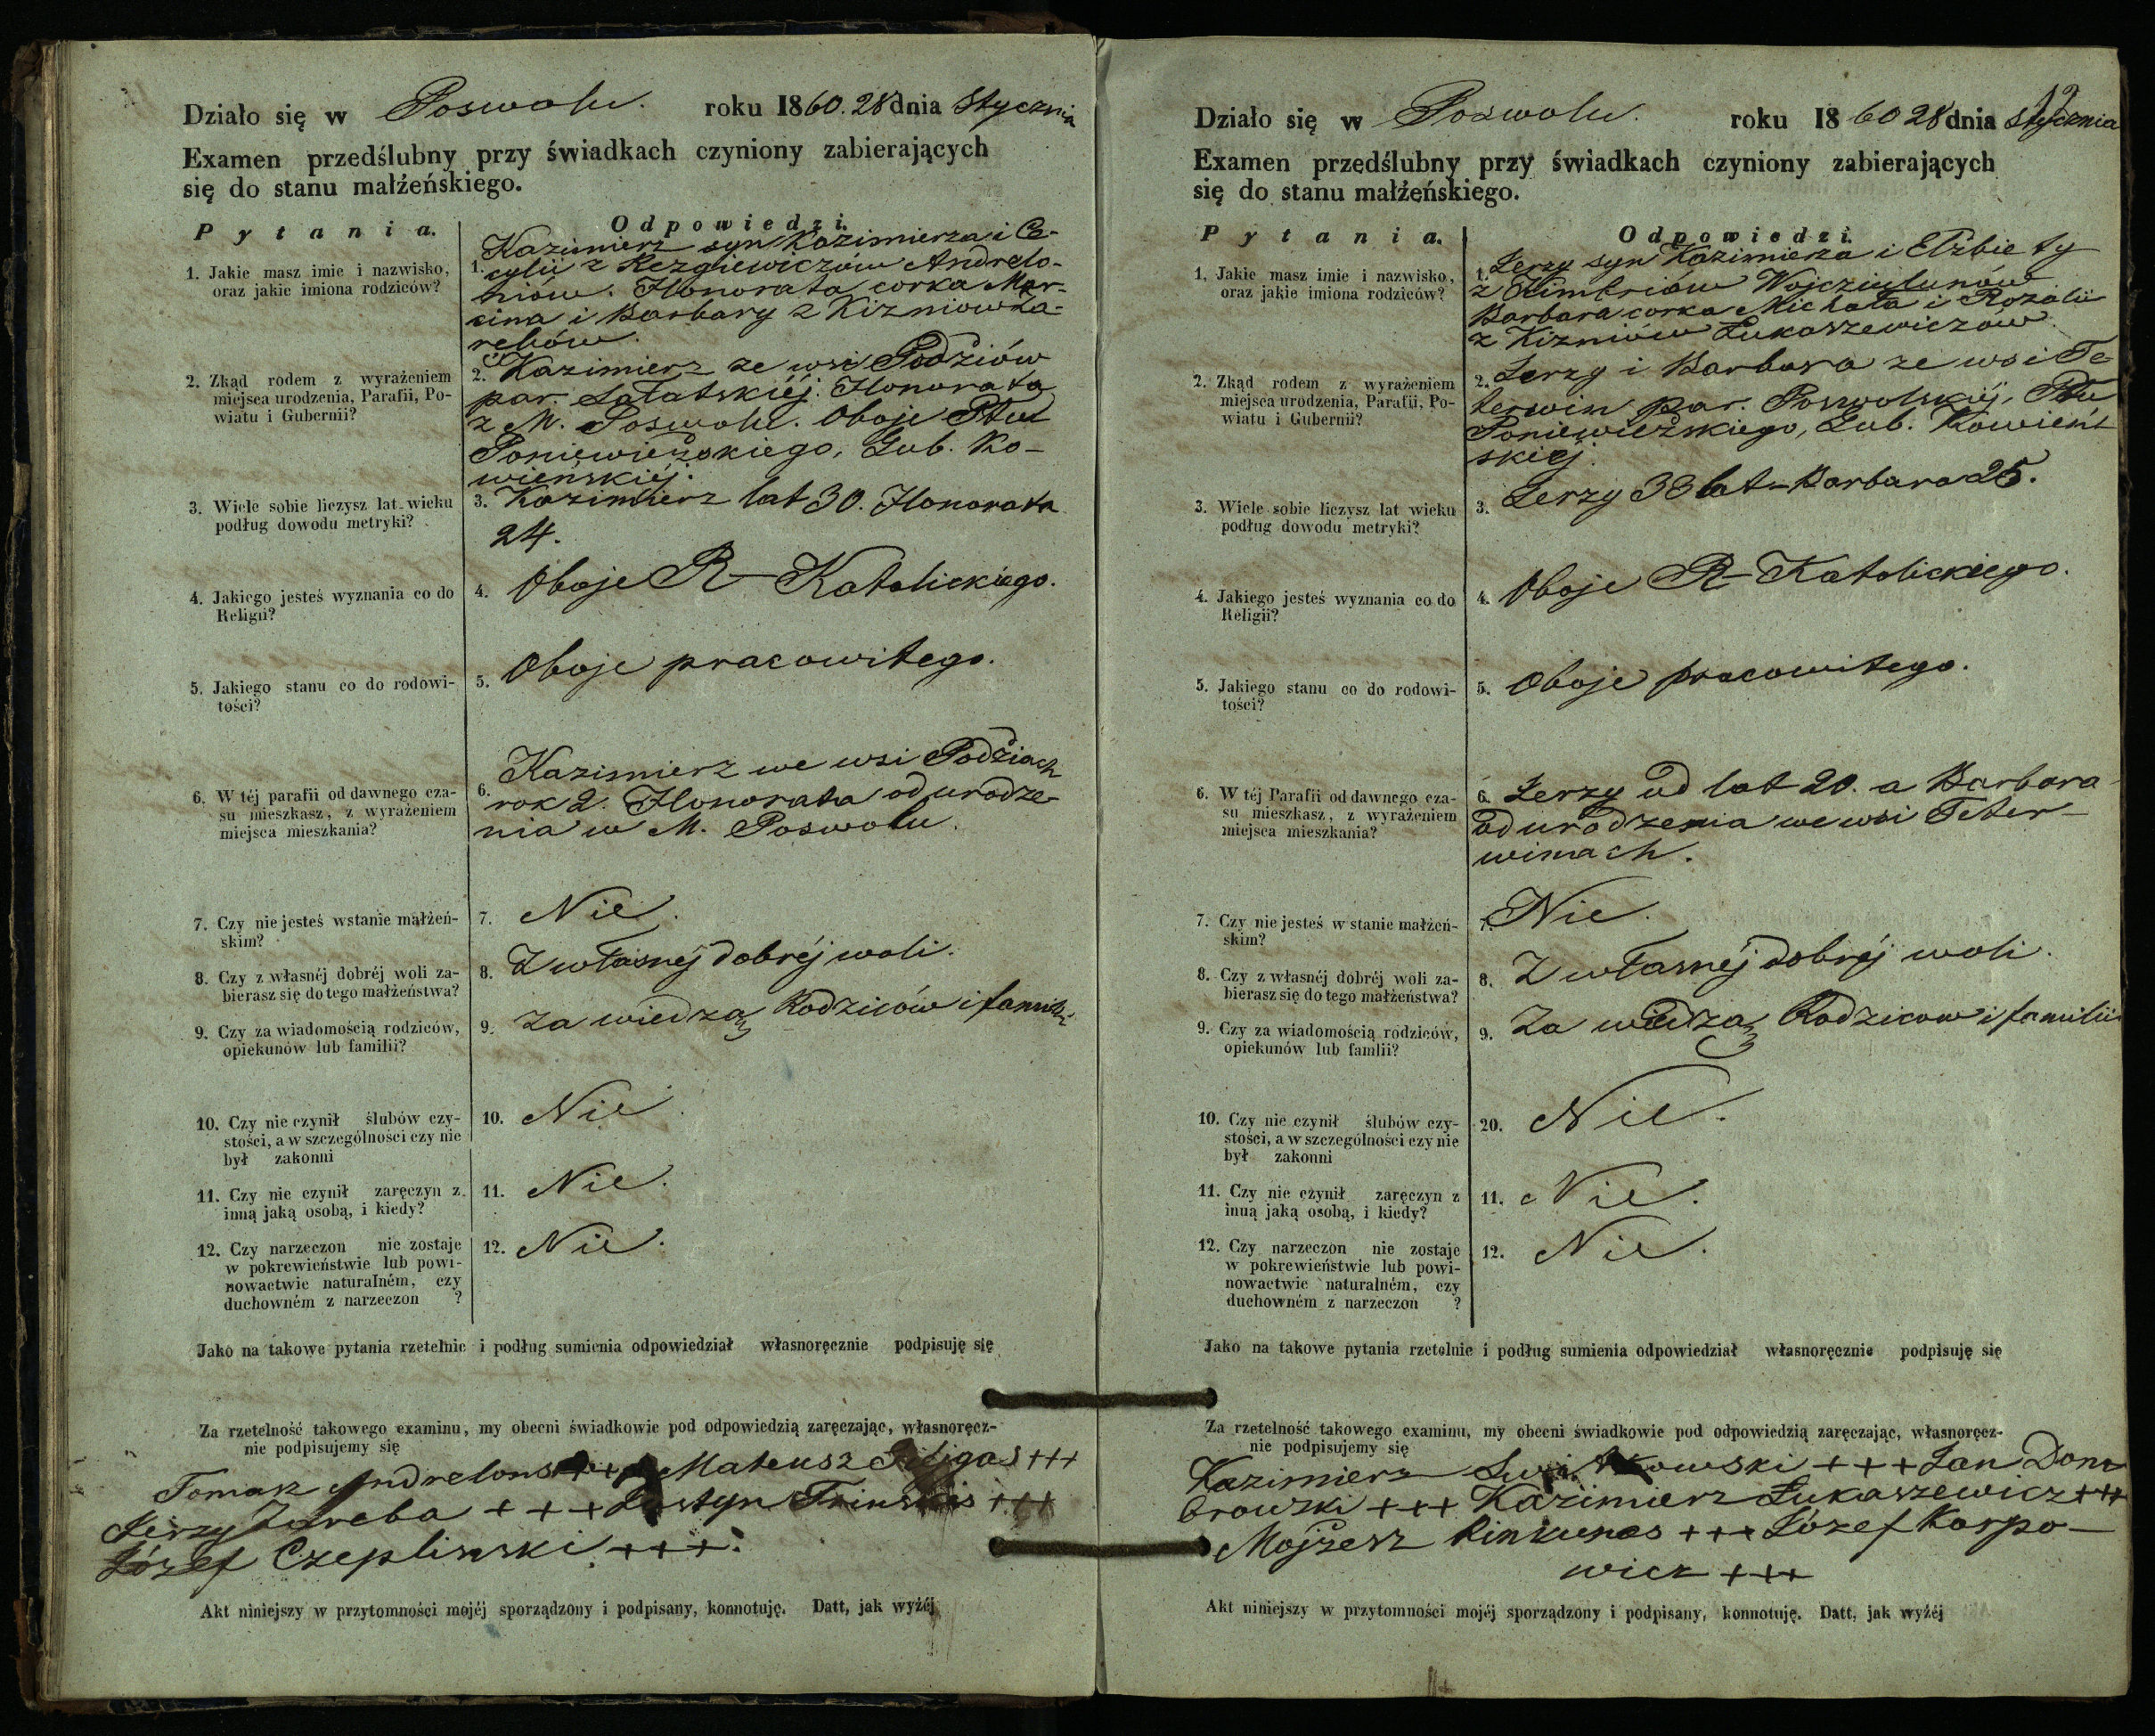 Działo się w Poswolu. roku 1860. 28 dnia Stycznia
Examen przedślubny przy świadkach czyniony zabierających
się do stanu małżeńskiego.
Pytania. Odpowiedzi.
1. Jakie masz imie i nazwisko,
oraz jakie imiona rodziców?
1. Kazimierz syn Kazimierza i Ce-
cylii z Rezgiewiczów Andrelo-
niów. Honorata corka Mar-
cina i Barbary z Kizniow Za-
rebów.
2. Zkąd rodem z wyrażeniem
miejsca urodzenia, Parafii, Po-
wiatu i Gubernii?
2. Kazimierz ze wsi Podziów
par. Sałatskiéj. Honorata
z M. Poswolu. Oboje Ptu
Poniewieżskiego, Gub. Ko-
wieńskiéj.
3. Wiele sobie liczysz lat wieku
podług dowodu metryki?
3. Kazimierz lat 30. Honorata
24.
4. Jakiego jesteś wyznania co do
Religii?
4. Oboje R-Katolickiego.
5. Jakiego stanu co do rodowi-
tości?
5. Oboje pracowitego.
6. W téj parafii od dawnego cza-
su mieszkasz, z wyrażeniem
miejsca mieszkania?
6. Kazimierz we wsi Podziach
rok 2. Honorata od urodze-
nia w M. Poswolu.
7. Czy nie jesteś wstanie małżeń-
skim?
7. Nie.
8. Czy z własnéj dobréj woli za-
bierasz się do tego małżeństwa?
8. Z własnéj dobréj woli.
9. Czy za wiadomością rodziców,
opiekunów lub familii?
9. Za wiedzą Rodziców i familii
10. Czy nie czynił ślubów czy-
stości, a w szczególności czy nie
był zakonni
10. Nie.
11. Czy nie czynił zaręczyn z
inną jaką osobą, i kiedy?
11. Nie.
12. Czy narzeczon nie zostaje
w pokrewieństwie lub powi-
nowactwie naturalném, czy
duchowném z narzeczon ?
12. Nie.
Jako na takowe pytania rzetelnie i podług sumienia odpowiedział własnoręcznie podpisuję się
Za rzetelność takowego examinu, my obecni świadkowie pod odpowiedzią zaręczając, własnoręcz-
nie podpisujemy się
Tomasz +++ Mateusz +++
Jerzy Zareba +++ Justyn +++
Józef Czeplinski +++.
Akt niniejszy w przytomności mojéj sporządzony i podpisany, konnotuję. Datt, jak wyżéj
12
Działo się w Poswolu. roku 1860 28 dnia Stycznia
Examen przedślubny przy świadkach czyniony zabierających
się do stanu małżeńskiego.
Pytania. Odpowiedzi.
1. Jakie masz imie i nazwisko,
oraz jakie imiona rodziców?
1. Jerzy syn Kazimierza i Elżbiety
z Wojcziulunów
Barbara corka Michała i Rozalii
z Kizniów Łukaszewiczów.
2. Zkąd rodem z wyrażeniem
miejsca urodzenia, Parafii, Po-
wiatu i Gubernii?
2. Jerzy i Barbara ze wsi Te-
terwin par. Poswolskiéj, Ptu
Poniewieżskiego, Gub. Kowień-
skiej.
3. Wiele sobie liczysz lat wieku
podług dowodu metryki?
3. Jerzy 38 lat - Barbara 25.
4. Jakiego jesteś wyznania co do
Religii?
4. Oboje R-Katolickiego.
5. Jakiego stanu co do rodowi-
tości?
5. Oboje pracowitego.
6. W téj Parafii od dawnego cza-
su mieszkasz, z wyrażeniem
miejsca mieszkania?
6. Jerzy od lat 20. a Barbara
od urodzenia we wsi Teter-
winach.
7. Czy nie jesteś w stanie małżeń-
skim?
7. Nie.
8. Czy z własnéj dobréj woli za-
bierasz się do tego małżeństwa?
8. Z własnéj dobréj woli.
9. Czy za wiadomością rodziców,
opiekunów lub famlii?
9. Za wiedzą Rodzicow i familii
10. Czy nie czynił ślubów czy-
stości, a w szczególności czy nie
był zakonni
20. Nie.
11. Czy nie czynił zaręczyn z
inną jaką osobą, i kiedy?
11. Nie.
12. Czy narzeczon nie zostaje
w pokrewieństwie lub powi-
nowactwie naturalném, czy
duchowném z narzeczon ?
12. Nie.
Jako na takowe pytania rzetelnie i podług sumienia odpowiedział własnoręcznie podpisuję się
Za rzetelność takowego examinu, my obecni świadkowie pod odpowiedzią zaręczając, własnoręcz-
nie podpisujemy się
Kazimierz +++ Jan Dom-
browski +++ Kazimierz Łukaszewicz +++
Mojżesz Rinkunas +++ Józef Karpo-
wicz +++
Akt niniejszy w przytomności mojéj sporządzony i podpisany, konnotuję. Datt, jak wyźéj